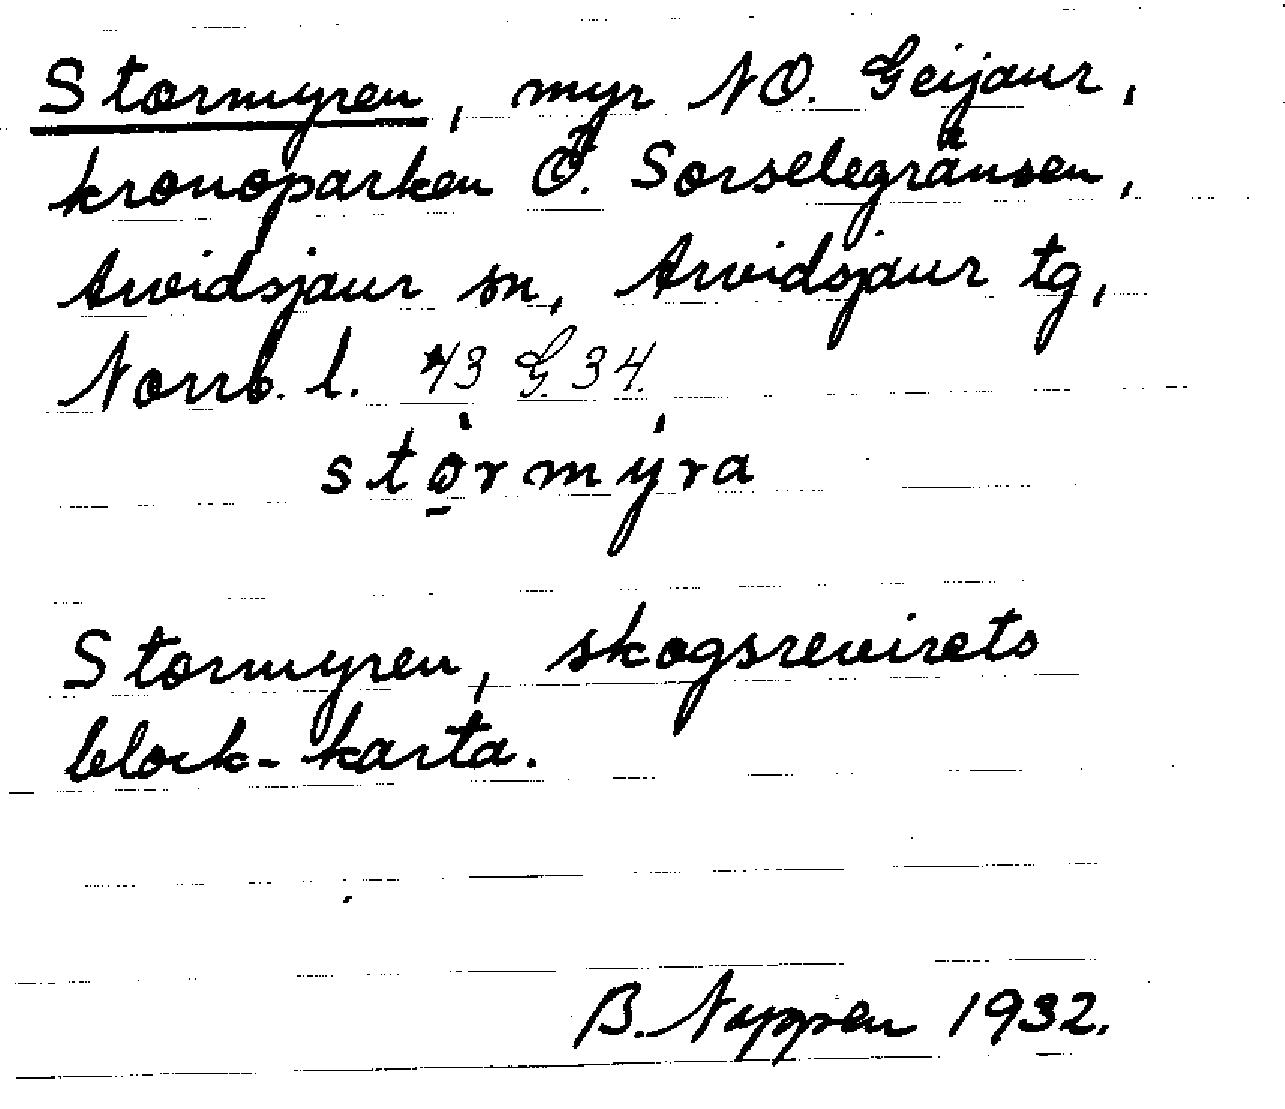 Stormyren, myr NO. Geijaur,
kronoparken Ö. Sorselegränsen,
Arvidsjaur sn, Arvidsjaur tg,
Norrb. l. 43 G 34
stọ̀rmýra
Stormyren, skogsrevirets
block-karta.
B. Nappen 1932.